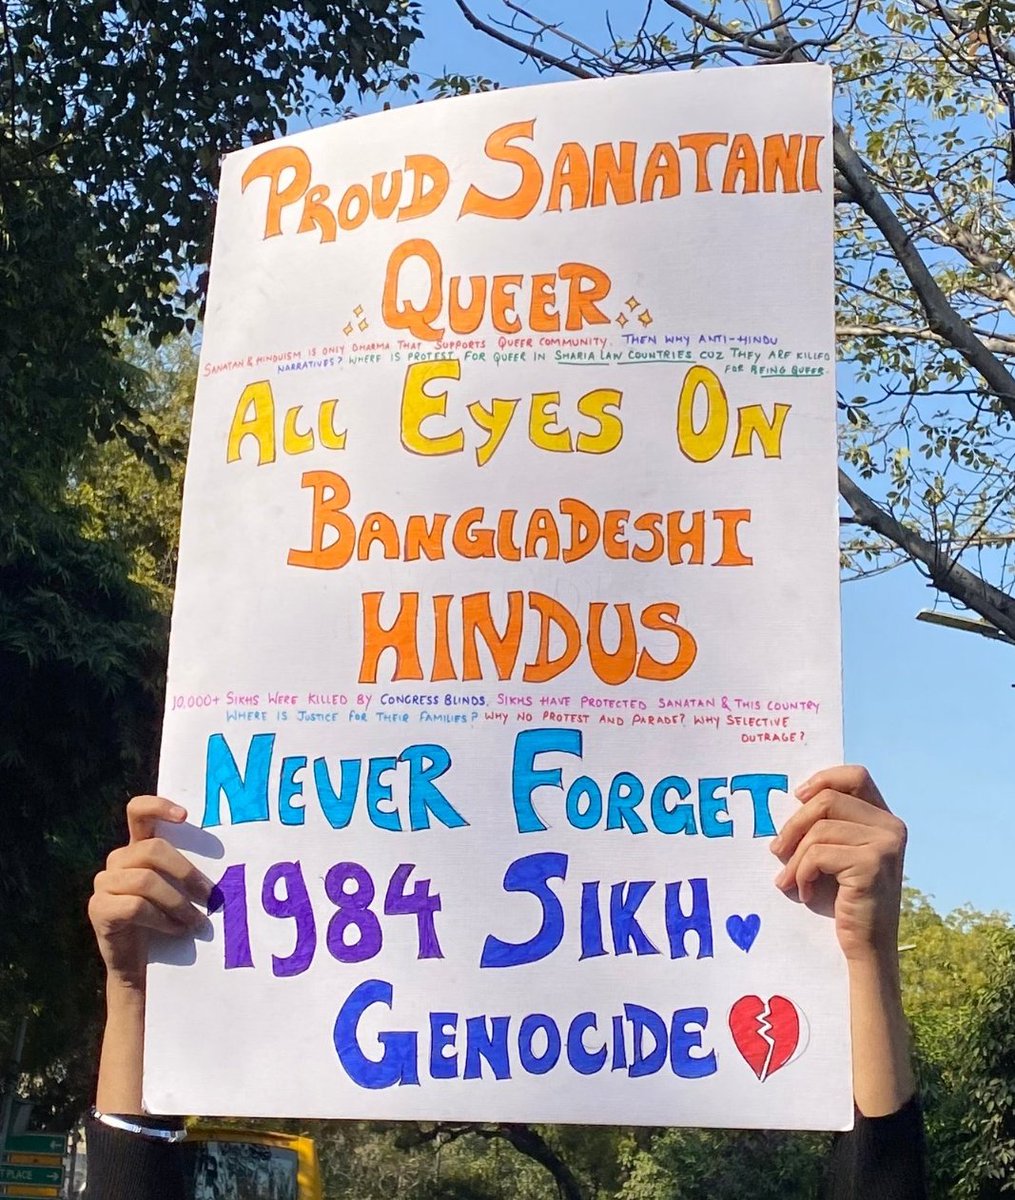 PROUD SANATANI
QUEER
SANATAN & HINDUISM IS ONLY DHARMA THAT SUPPORTS QUEER COMMUNITY. THEN WHY ANTI-HINDU
NARRATIVES? WHERE IS PROTEST FOR QUEER IN SHARIA LAW COUNTRIES CUZ THEY ARE KILLED
FOR BEING QUEER.
ALL EYES ON
BANGLADESHI
HINDUS
10,000+ SIKHS WERE KILLED BY CONGRESS BLINDS, SIKHS HAVE PROTECTED SANATAN & THIS COUNTRY
WHERE IS JUSTICE FOR THEIR FAMILIES? WHY NO PROTEST AND PARADE? WHY SELECTIVE
OUTRAGE?
NEVER FORGET
1984 SIKH
GENOCIDE
PLACE